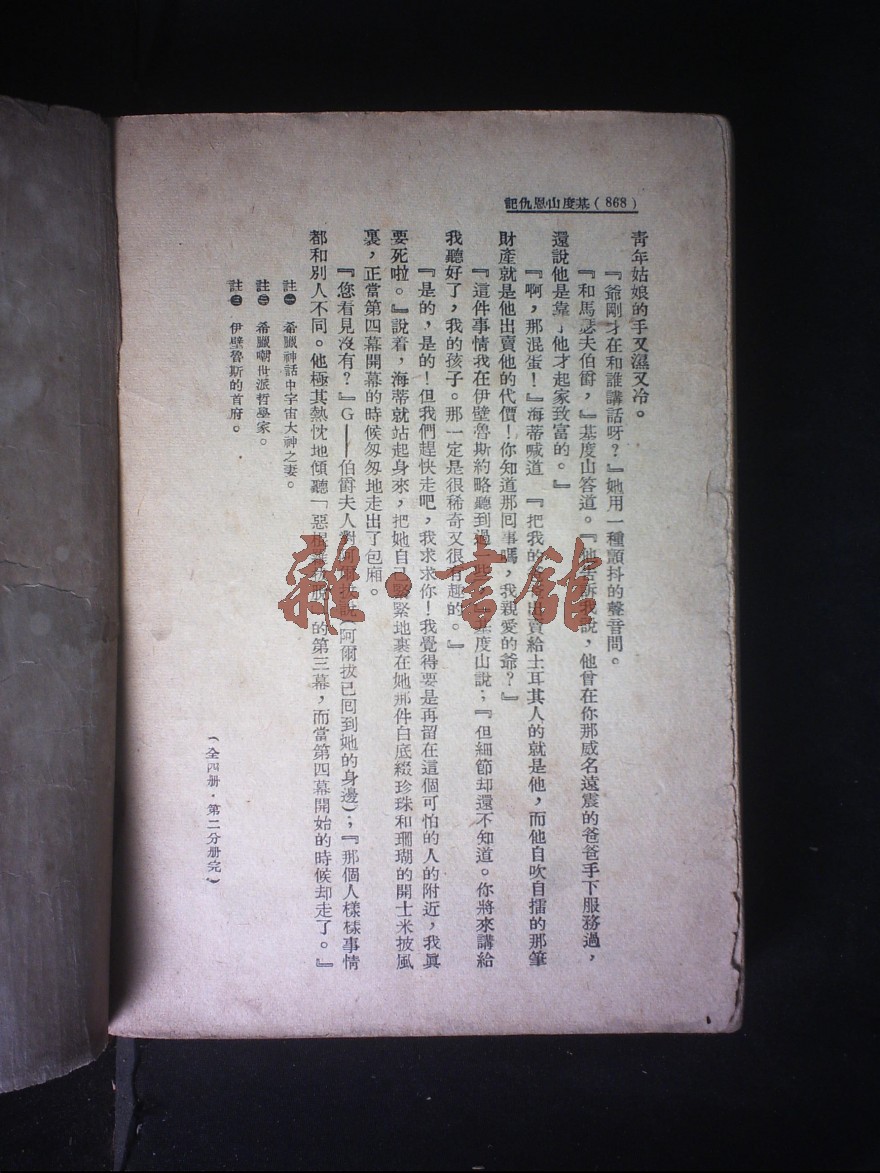 基度山恩仇記(868)
青年姑娘的手又濕又冷。
『爺剛才在和誰講話呀?』她用一種顫抖的聲音問。
『和馬瑟夫伯爵,』基度山答道。『他告訴我說,他曾在你那威名遠震的爸爸手下服務過,
還說他是靠了他才起家致富的。』
『啊,那混蛋!』海蒂喊道『把我的爸爸出賣給土耳其人的就是他,而他自吹自擂的那筆
財產就是他出賣他的代價!你知道那囘事嗎,我親愛的爺?』
『這件事情我在伊壁魯斯約略聽到過一些,』基度山說;『但細節却還不知道。你將來講給
我聽好了,我的孩子。那一定是很稀奇又很有趣的。』
『是的,是的!但我們趕快走吧,我求求你!我覺得要是再留在這個可怕的人的附近,我眞
要死啦。』說着,海蒂就站起身來,把她自己緊緊地裹在她那件白底綴珍珠和珊瑚的開士米披風
裏,正當第四幕開幕的時候匆匆地走出了包廂。
『您看見沒有?』G——伯爵夫人對阿爾拔說(阿爾拔已囘到她的身邊);『那個人樣樣事情
都和別人不同。他極其熱忱地傾聽「惡 的第三幕,而當第四幕開始的時候却走了。』
註㊀ 希臘神話中宇宙大神之妻。
註㊁ 希臘嘲世派哲學家。
註㊂ 伊壁魯斯的首府。
(全四册·第二分册完)
雜·書館